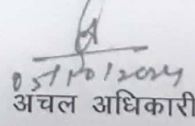 05/10/2024
अंचल अधिकारी